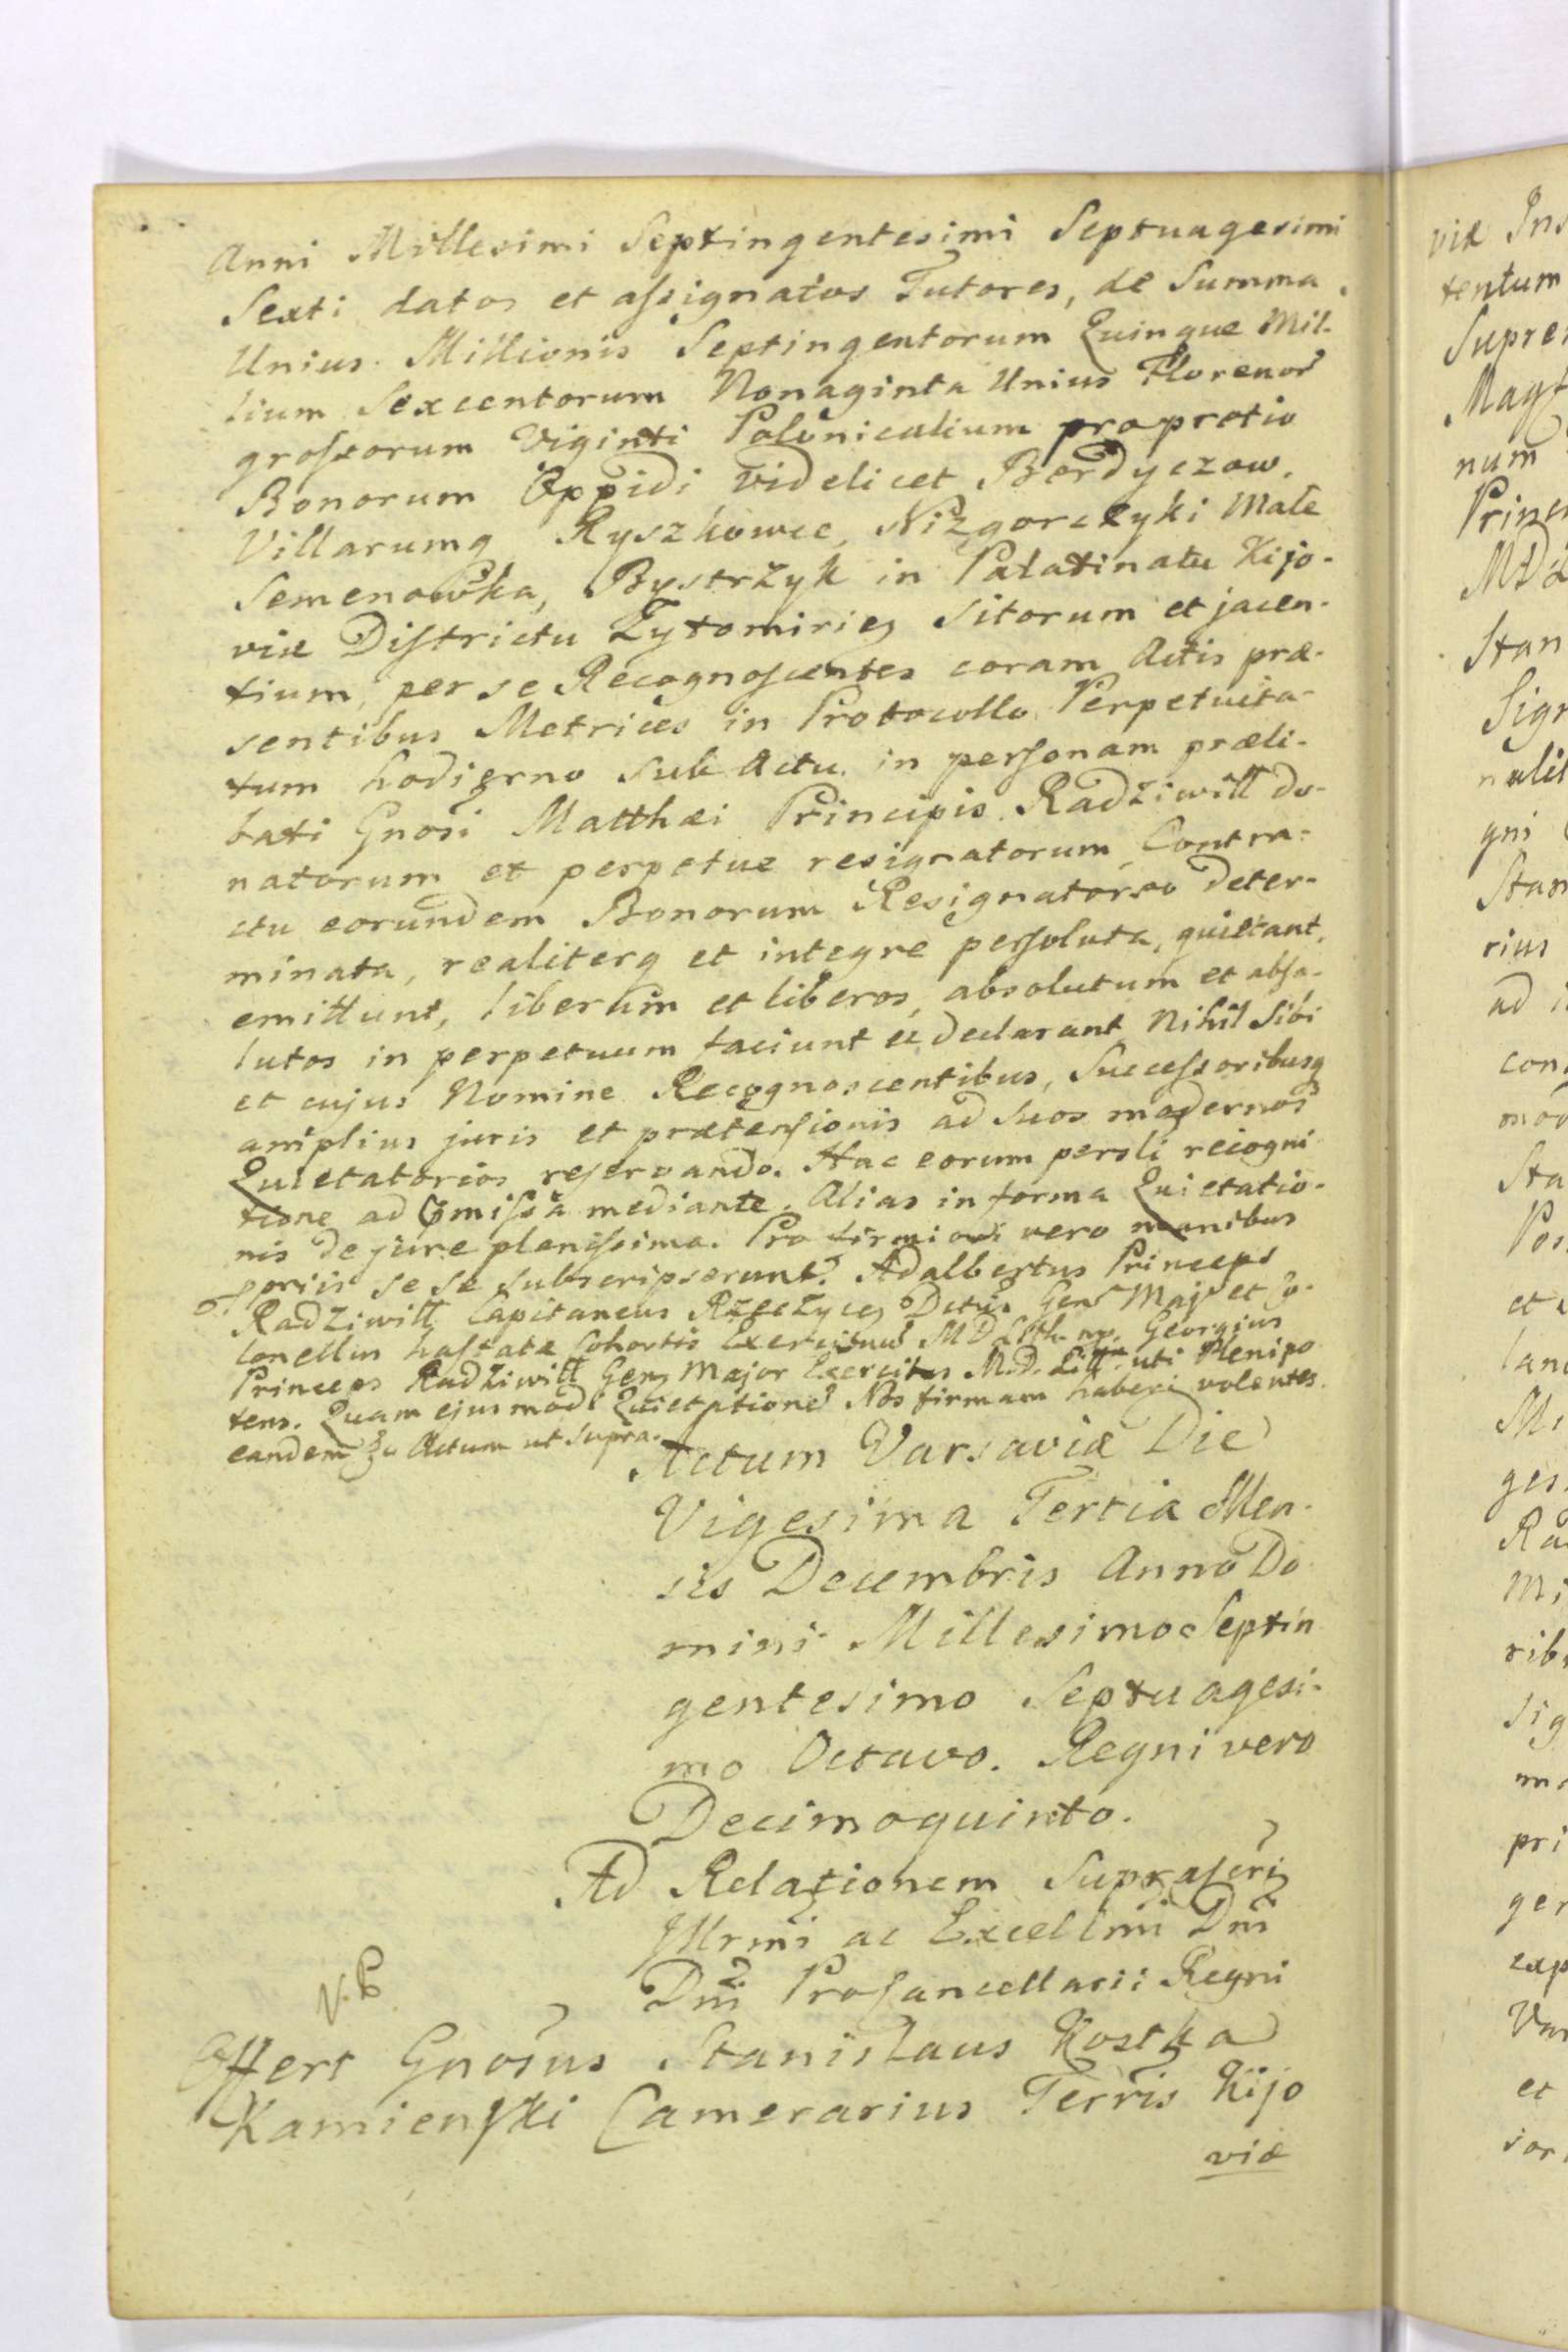 Anni Millesimi Septingentesimi Septuagesimi
Sexti datos et assignatos Tutores, de Summa
Unius Millionis Septingentorum Quinque Mil-
lium Sexcentorum Nonaginta Unius Florenor
grossorum Viginti Polonicalium pro pretio
Bonorum Oppidi videlicet Berdyczow,
Villarumq Ryszkowce, Nizgorczyki Małe
Semenowka, Bystrzyk in Palatinatu Kijo-
viæ Districtu Zytomirien Sitorum et jacen-
tium, per se Recognoscentes coram Actis præ-
sentibus Metrices in Protocollo Perpetuita-
tum hodierno sub Actu in personam præli-
bati Gnosi Matthæi Principis Radziwiłł do-
natorum et perpetue resignatorum, Contra-
ctu eorundem Bonorum Resignatorio deter-
minata, realiterq et integre persoluta, quietant,
emittunt, liberum et liberos, absolutum et abso-
lutos in perpetuum faciunt et declarant Nihil Sibi
et cujus Nomine Recognoscentibus, Successoribusq
amplius juris et prætensionis ad suos modernos
Quietatorios reservando. Hac eorum persli recogni
tione ad præmissa mediante. Alias in forma Quietatio-
nis de jure plenissima. Pro firmiori vero manibus
propriis se se subscripserunt. Adalbertus Princeps
Radziwiłł Capitaneus Rzeczycen Dctus Gen Maj et Co-
lonellus hastatæ Cohortis Exercituu MD Lith. mp. Georgius
Princeps Radziwiłł Gen Major Exercitus M.D. Litt uti Plenipo
tens. Quam ejusmodi Quietatione Nos firmam haberi volentes
eandem Actum ut supra.
Actum Varsaviæ Die
Vigesima Tertia Men-
sis Decembris Anno Do
mini Millesimo Septin
gentesimo Septuagesi-
mo Octavo. Regni vero
Decimoquinto.
Ad Relationem Suprascri
Illrmi ac Excellmi Dni
Dni Procancellarii Regni
Offert Gnosus Stanislaus Kostka
Kamienski Camerarius Terris Kijo
viæ
viæ Ins
tentum
Supre
Magf
num
Princ
MDL
Stan
Sign
nalit
gni
Stan
rius
ad
con
mod
Sta
Pos
et
lan
Mi
ges
Ra
mi
rib
sig
pri
ger
exp
Var
et
sor